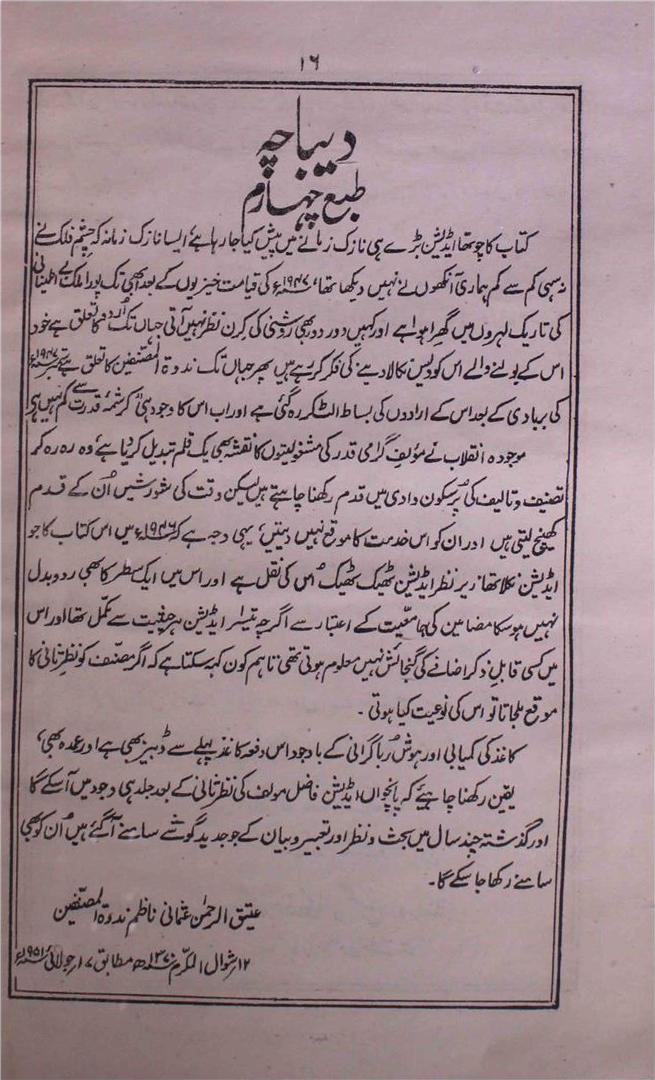 ۱۶
دیباچہ
طبع چہارم
کتاب کا چوتھا ایڈیشن بڑے ہی نازک زمانے میں پیش کیا جا رہا ہے، ایسا نازک زمانہ کہ چشمِ فلک نے
نہ سہی کم سے کم ہماری آنکھوں نے نہیں دیکھا تھا، ۱۹۴۷ء کی قیامت خیزیوں کے بعد ابھی تک پورا ملک بے اطمینانی
کی تاریک لہروں میں گھرا ہوا ہے اور کہیں دور دور بھی روشنی کی کرن نظر نہیں آتی جہاں تک اُردو کا تعلق ہے خود
اس کے بولنے والے اس کو دیس نکالا دینے کی فکر کر رہے ہیں پھر جہاں تک ندوۃ المصنّفین کا تعلق ہے ستمبر ۱۹۴۷ء
کی بربادی کے بعد اس کے ارادوں کی بساط الٹ کر رہ گئی ہے اور اب اس کا وجود ہی کرشمۂ قدرت سے کم نہیں ہی
موجودہ انقلاب نے مؤلفِ گرامی قدر کی مشغولیتوں کا نقشہ بھی یک قلم تبدیل کر دیا ہے، وہ رہ رہ کر
تصنیف و تالیف کی پُرسکون وادی میں قدم رکھنا چاہتے ہیں لیکن وقت کی شورشیں اُن کے قدم
کھینچ لیتی ہیں اور ان کو اس خدمت کا موقع نہیں دیتیں، یہی وجہ ہے کہ ۱۹۴۶ء میں اس کتاب کا جو
ایڈیشن نکلا تھا زیر نظر ایڈیشن ٹھیک ٹھیک اُس کی نقل ہے اور اس میں ایک سطر کا بھی رد و بدل
نہیں ہو سکا مضامین کی جامعیّت کے اعتبار سے اگرچہ تیسرا ایڈیشن ہر حیثیت سے مکمل تھا اور اس
میں کسی قابلِ ذکر اضافے کی گنجائش نہیں معلوم ہوتی تھی تاہم کون کہہ سکتا ہے کہ اگر مصنّف کو نظرِ ثانی کا
موقع ملجاتا تو اس کی نوعیت کیا ہوتی۔
کاغذ کی کمیابی اور ہوش رُبا گرانی کے باوجود اس دفعہ کاغذ پہلے سے دبیز بھی ہے اور عمدہ بھی،
یقین رکھنا چاہیئے کہ پانچواں ایڈیشن فاضل مولف کی نظر ثانی کے بعد جلد ہی وجود میں آسکے گا
اور گذشتہ چند سال میں بحث و نظر اور تعبیر و بیان کے جو جدید گوشے سامنے آگئے ہیں اُن کو بھی
سامنے رکھا جا سکے گا۔
عتیق الرحمٰن عثمانی ناظم ندوۃ المصنّفین
۱۲ر شوال المکرم ۱۳۷۰ھ مطابق ۱۷ر جولائی ۱۹۵۱ء